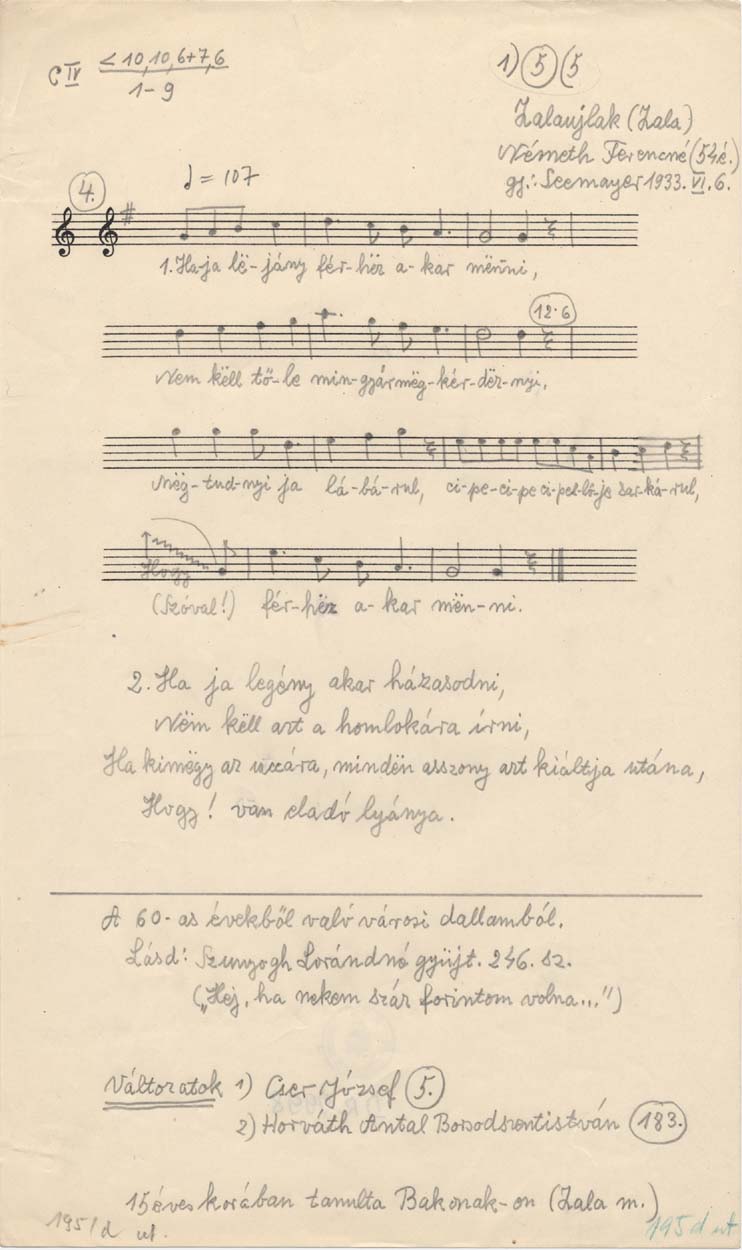 C IV < 10,10,6+7,6
1-9
1) 5 (5
Zalaujlak (Zala)
Németh Ferencné (54é.)
gj.: Seemayer 1933. VI. 6.
4.
♩ = 107
1. Ha-ja lë-jány fér-hëz a-kar mënni,
12·6
Nem këll tő-le min-gyár mëg-kér-dëz-nyi,
Mëg-tud-nyi ja lá-bá-rul, ci-pe-ci-pe ci-pel-lő-je sar-ká-rul,
Hogy
(Szóval!) fér-hëz a-kar mën-ni.
2. Ha ja legény akar házasodni,
Nëm këll azt a homlokára írni,
Ha kimëgy az uccára, mindën asszony azt kiáltja utána,
Hogy! van eladó lyánya.
A 60-as évekből való városi dallamból.
Lásd: Szunyogh Lorándné gyüjt. 246. sz.
("Hej, ha nekem száz forintom volna...")
Változatok 1) Cser József 5.
2) Horváth Antal Borsodszentistván 183.
15 éves korában tanulta Bakonak-on (Zala m.)
195/d ut.
195 d ut